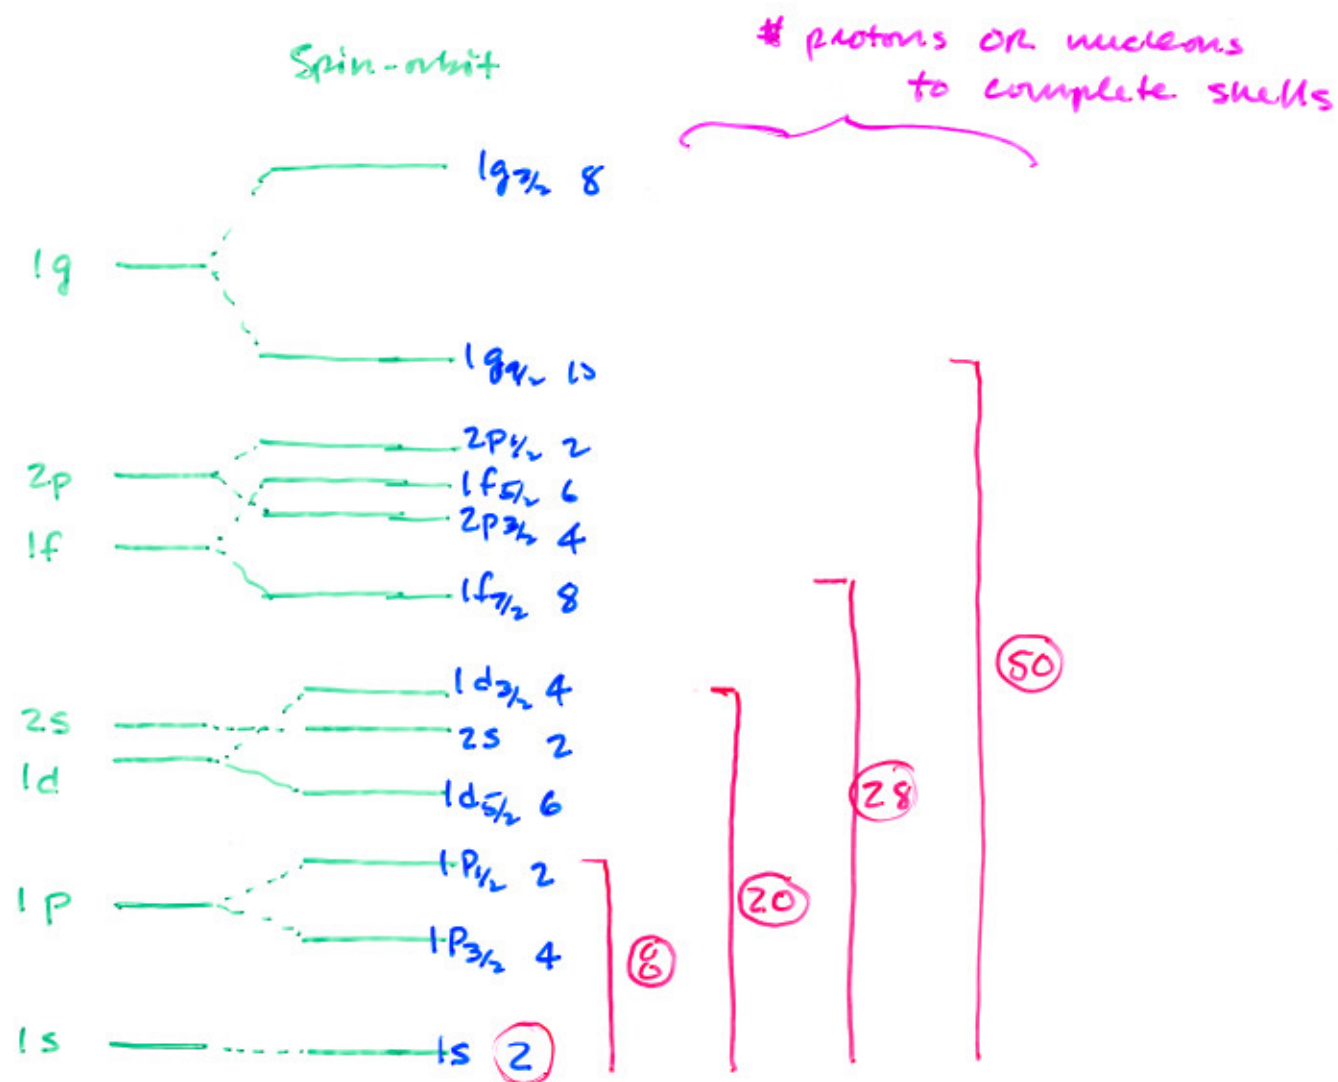 Spin-orbit
# protons OR nucleons
to complete shells
1g
1g7/2 8
1g9/2 10
2p
1f
2p1/2 2
1f5/2 6
2p3/2 4
1f7/2 8
2s
1d
1d3/2 4
2s 2
1d5/2 6
1p
1p1/2 2
1p3/2 4
1s
1s 2
8
20
28
50